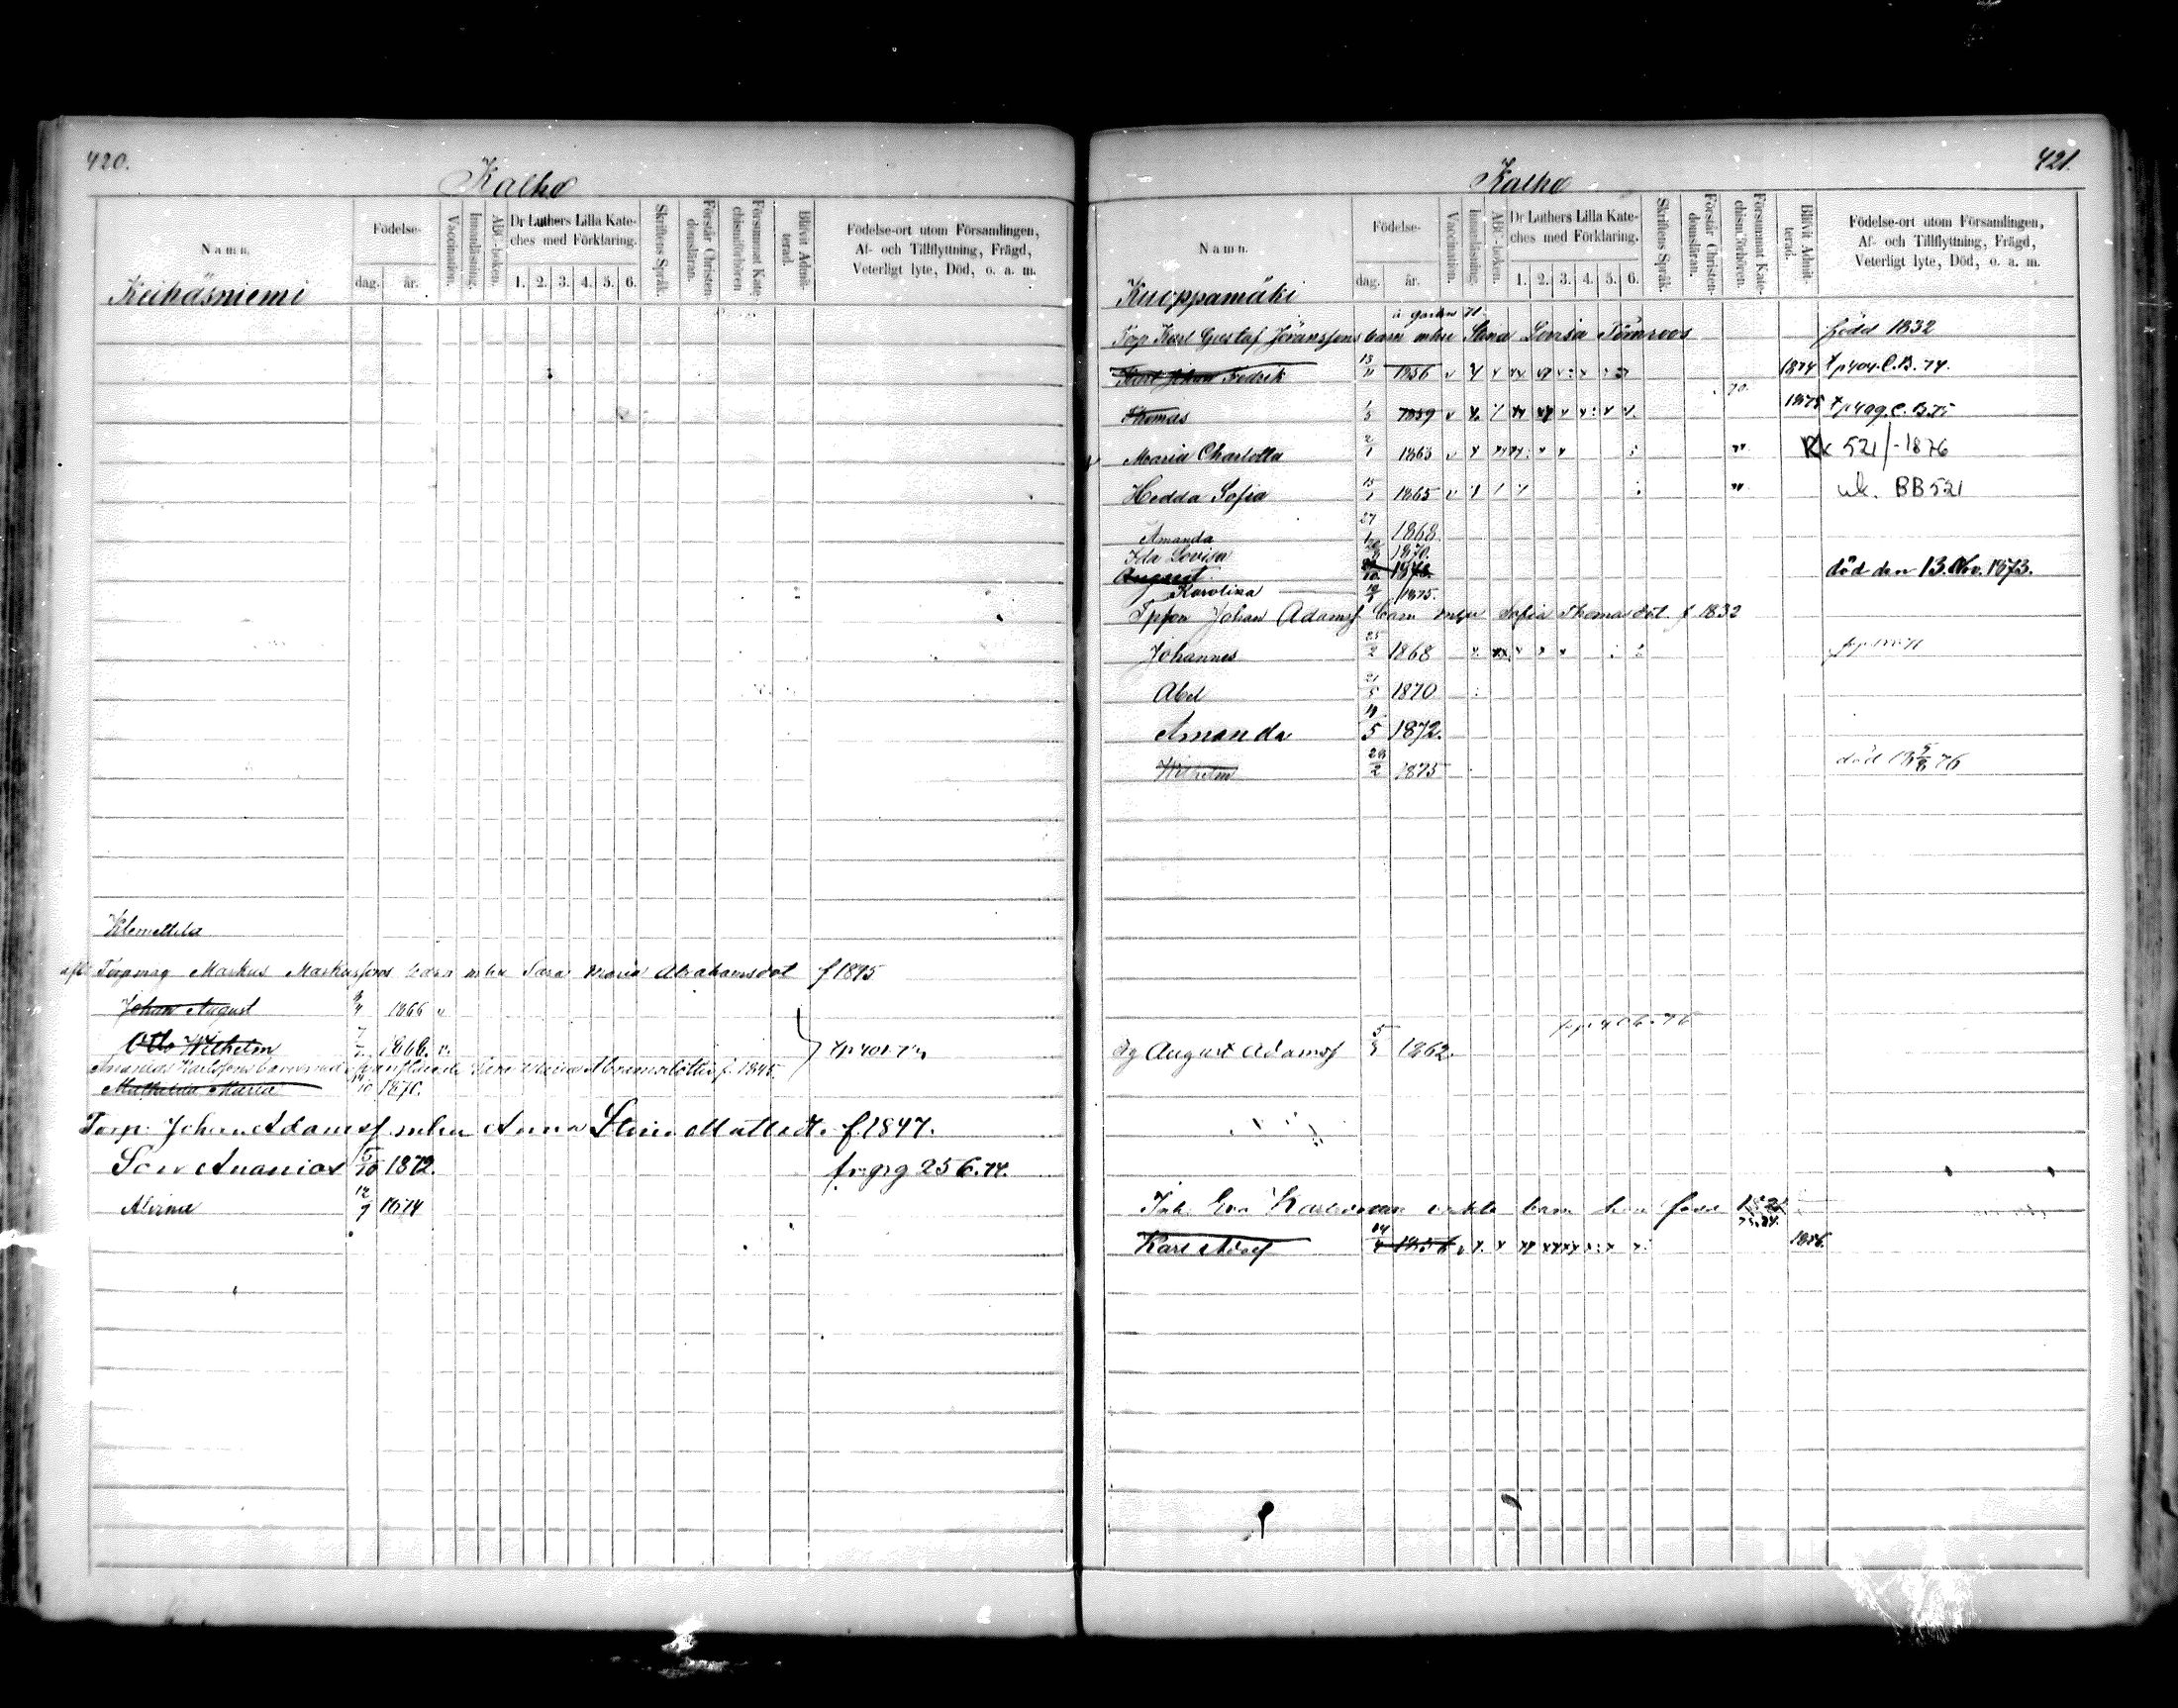 420.
Kalho
Namn.
Födelse-
dag.
år.
Vaccination.
Innanläsning.
ABC-boken.
Dr Luthers Lilla Kate-
ches med Förklaring.
1. 2. 3. 4. 5. 6.
Skriftens Språk.
Förstår Christen-
domsläran.
Försummat Kate-
chismiförhören
Blifvit Admit-
terad.
Födelse-ort utom Församlingen,
Af- och Tillflyttning, Frägd,
Veterligt lyte, Död, o. a. m.
Keihäsniemi
Klemettila
Markus Markussons barn mhu Sara Maria Abrahamsdot f 1875
Johan August 1866 v
Otto Wilhelm 1868. v.
Mathilda Maria 10 1870.
Torp. Johan Adamsf mhu Anna Stina Mattsdt. f. 1847.
Son Ananias 5/10 1872. fr. grg 256. 74.
Alvina 12/9 1874
421.
Kalho
Namn.
Födelse-
dag.
år.
Vaccination.
Innanläsning.
ABC-boken.
Dr Luthers Lilla Kate-
ches med Förklaring.
1. 2. 3. 4. 5. 6.
Skriftens Språk.
Förstår Christen-
domsläran.
Försummat Kate-
chism.förhören.
Blifvit Admit-
terad.
Födelse-ort utom Församlingen,
Af- och Tillflyttning, Frägd,
Veterligt lyte, Död, o. a. m.
Kuoppamäki
Torp Karl Gustaf Jöranssons barn mhu Stina Lovisa Törnroos född 1832
Karl Johan Fredrik 13/11 1856 v 1874 t p 404. C. B. 74.
70.
Thomas 1/5 1859 v 1875
Maria Charlotta 2/1 1863 v " Rk 521/-1876
Hedda Sofia 15/1 1865 v " uk. BB 521
Amanda 27/1 1868.
Ida Lovisa 1870.
August 10 1872. död den 13. Nov. 1873.
Karolina 1875.
Johan Adamsf barn mhu Sofia Thomasdot. f 1832
Johannes 25/2 1868
Abel 21/5 1870
Amanda 11/5 1872.
Wilhelm 29/2 1875 död 76
p 406. 76
Dg August Adamsf 5/3 1862.
Inh. Eva barn född
Karl Adolf 1856 1876.